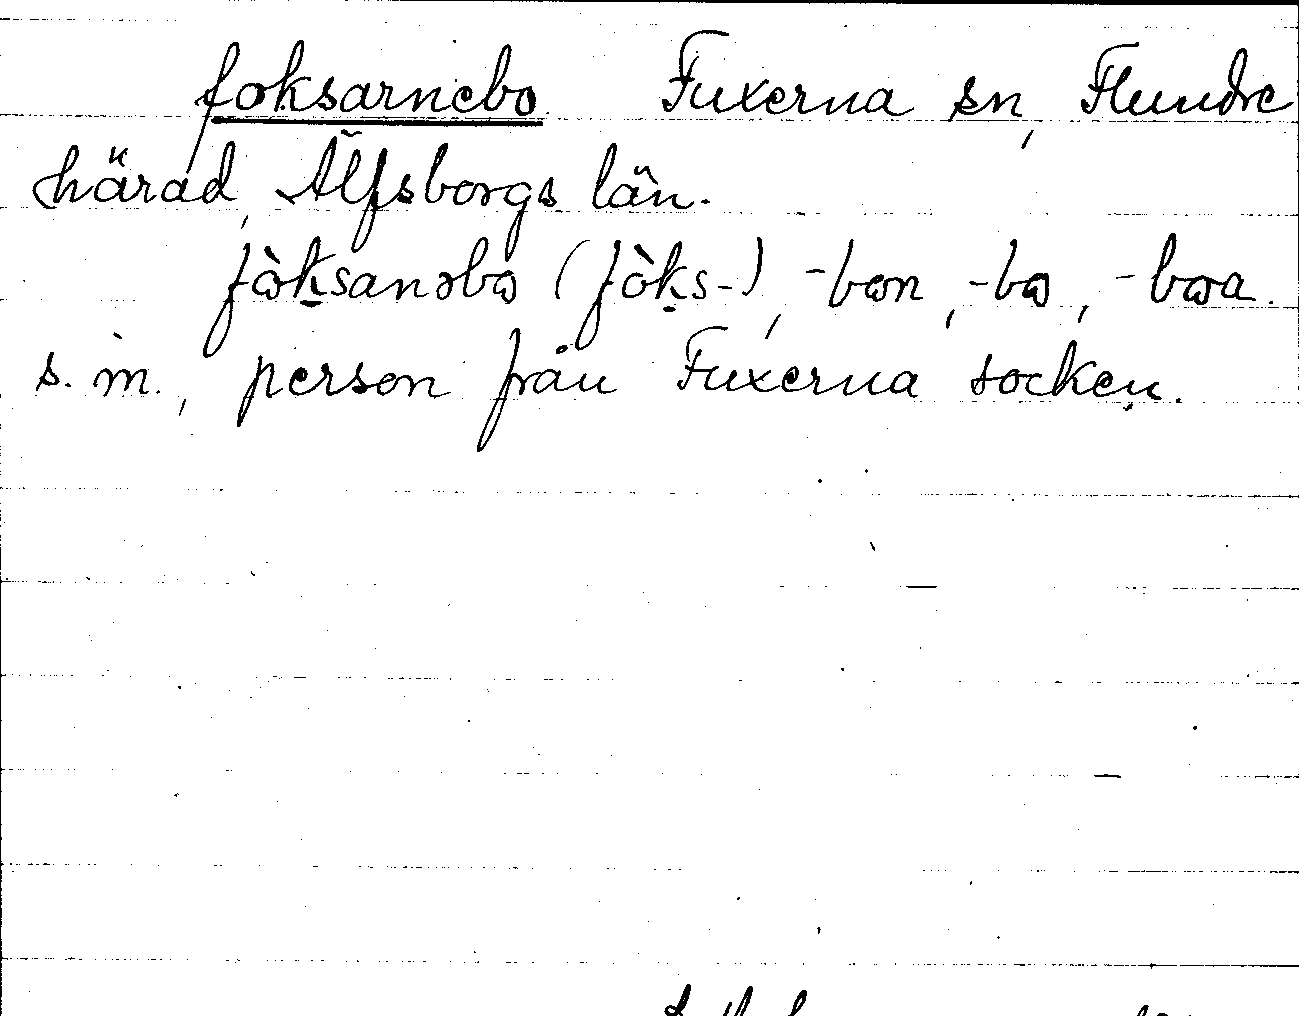 foksarnebo Fuxerna sn, Flundre
härad, Älfsborgs län.
fò̱ksanəbɷ (fòks-), -bɷn, -bɷ, -bɷa.
s. m., person från Fuxerna socken.